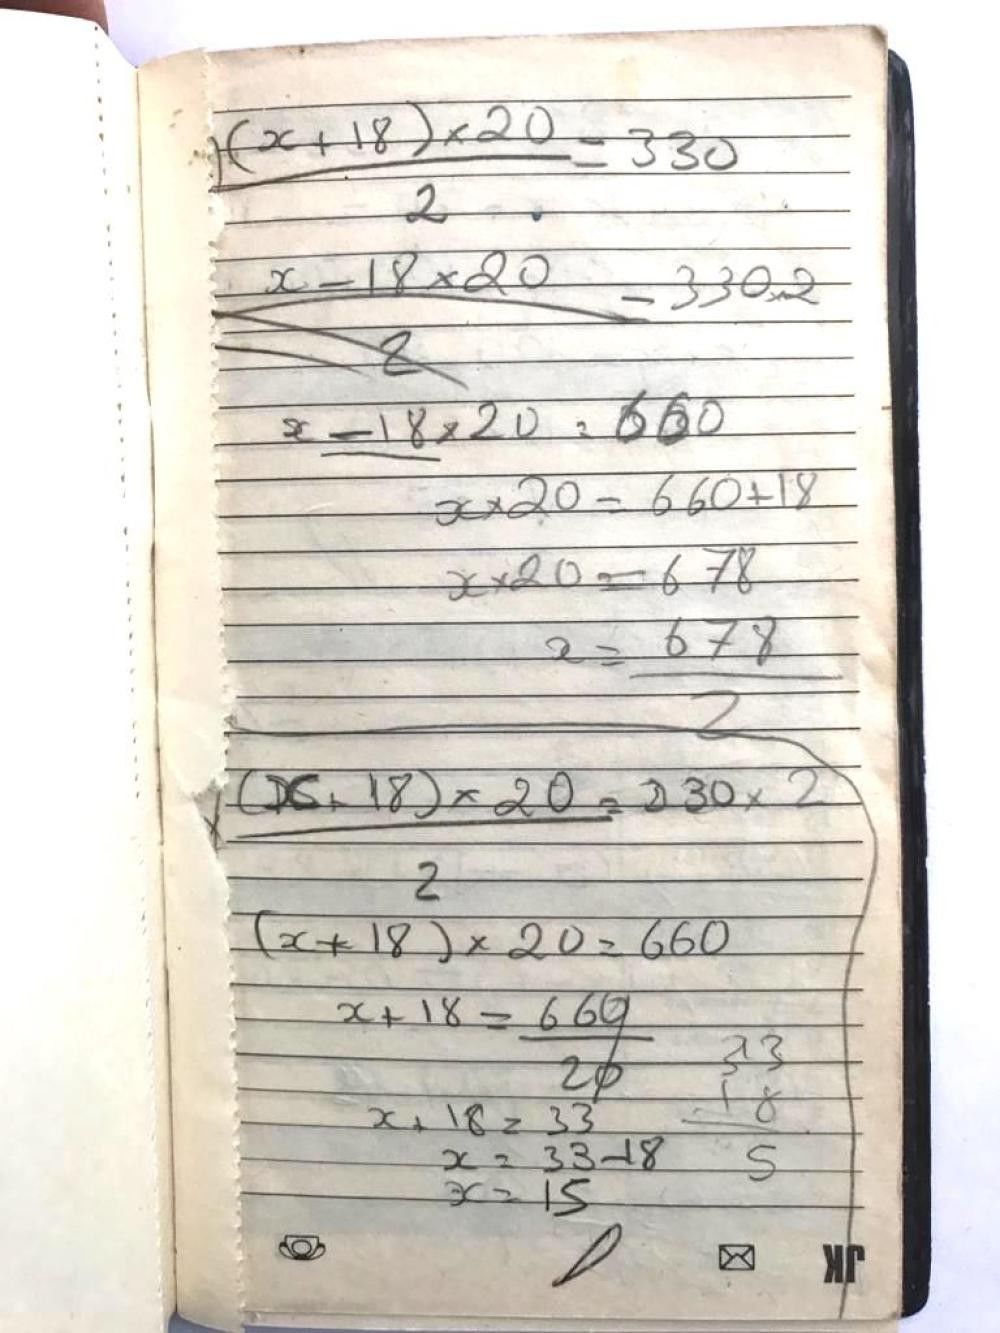 (x + 18) × 20 = 330
2
x - 18 × 20 = 330×2
2
x - 18 × 20 = 660
x × 20 = 660 + 18
x × 20 = 678
x = 678
2
(x + 18) × 20 = 330 × 2
2
(x + 18) × 20 = 660
x + 18 = 660
20
33
18
x + 18 = 33
x = 33 - 18
5
x = 15
JK